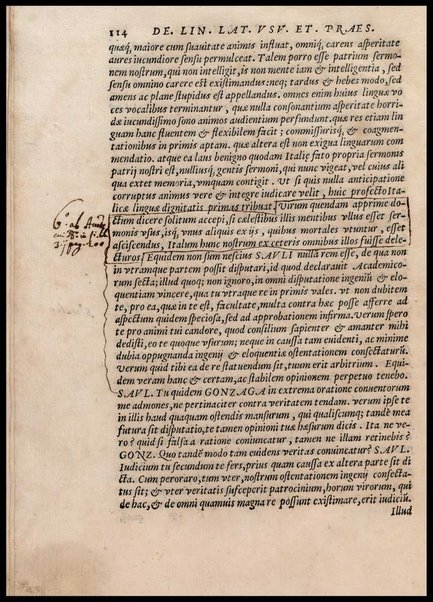 114 DE. LIN. LAT. VSV. ET. PRAES.
quæq́, maiore cum suauitate animis influat, omniq́, carens asperitate
aures iucundiore sensu permulceat. Talem porro esse patrium sermo-
nem nostrum, qui non intelligit, is non mente iam & intelligentia, sed
sensu omnino carere est existimandus: neq; tardus & hebes modo, sed
amens ac plane stupidus est appellandus. omnes enim huius linguæ vo
ces vocalibus terminantur, quæ nulla consonantium asperitate horri-
dæ iucundissimo sono animos audientium perfundunt. quæ res etiam lin
guam hanc fluentem & flexibilem facit; commissurisq́, & coagmen-
tationibus in primis aptam. quæ altera est non exigua linguarum com
mendatio. atque ea laus benigno quodam Italiæ fato propria sermonis
patrij nostri est, nulliusq́, gentis sermoni, qui nunc vigeat, vel cuius ali
qua extet memoria, vmquam contigit. Vt si quis nulla anticipatione
corruptus animus vere & integre iudicare velit, huic profecto Ita-
licæ linguæ dignitatis primas tribuat. Virum quendam apprime do-
ctum dicere solitum accepi, si cælestibus illis mentibus vllus esset ser-
monis vsus, isq́, vnus aliquis ex ijs, quibus mortales vtuntur, esset
asciscendus, Italum hunc nostrum ex ceteris omnibus illos fuisse dele-
cturos. Equidem non sum nescius SAVLI nulla rem esse, de qua non
in vtramque partem possit disputari, id quod declarauit Academico-
rum secta; illud quoq; non ignoro, in omni disputatione ingenij & elo-
quentiam vincere, qua tu vtraque re in primis vales. vt non dubitem
te, pro ea, quæ in te est, facultate, multa contra hæc posse afferre ad
aspectum quidem speciosa, sed ad approbationem infirma. Verum spero
te pro animi tui candore, quod consilium sapienter & amanter mihi
dedisti, eo te quoque vsurum; neque in caussa tam euidenti, ac minime
dubia oppugnanda ingenij & eloquentiæ ostentationem consectaturũ.
Verum quid tibi ea de re statuendum sit, tuum erit arbitrium. Equi-
dem veram hanc & certam, ac stabilem opinionem perpetuo tenebo.
SAVL. Tu quidem GONZAGA in extrema oratione conuentorum
me admones, ne pertinaciter contra veritatem tendam. verum ipse te
in illis haud quaquam ostendis mansurum, qui qualiscunq; tandē mea
futura sit disputatio, te tamen opinioni tuæ hæsurum dicis. Ita ne ve-
ro? quid si falsa a ratione conuincatur, tamen ne illam retinebis?
GONZ. Quo tandē modo tam euidens veritas conuincatur? SAVL.
Iudicium tu secundum te fers, prius quam caussa ex altera parte sit di
cta. Cum peroraro, tum vter, nostrum ostentationem ingenij consecta-
tus sit; & vter veritatis susceperit patrocinium, horum virorum, qui
de hac, & de omni quamuis magna re possunt existimare, erit iudiciũ.
Illud